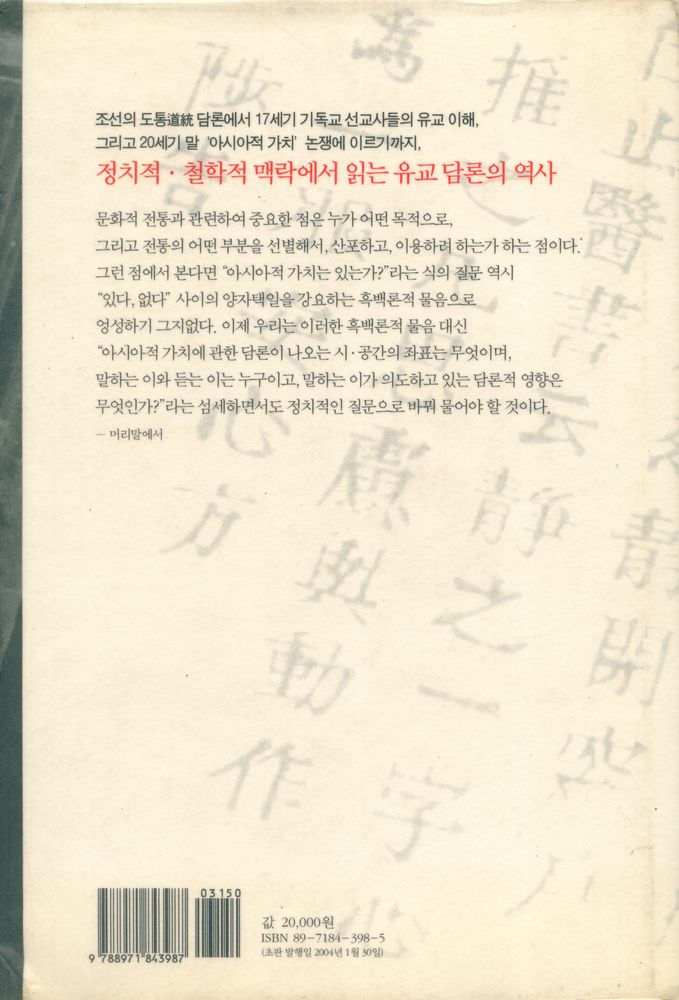 조선의 도통道統 담론에서 17세기 기독교 선교사들의 유교 이해,
그리고 20세기 말 '아시아적 가치' 논쟁에 이르기까지,
정치적 · 철학적 맥락에서 읽는 유교 담론의 역사
문화적 전통과 관련하여 중요한 점은 누가 어떤 목적으로,
그리고 전통의 어떤 부분을 선별해서, 산포하고, 이용하려 하는가 하는 점이다.
그런 점에서 본다면 “아시아적 가치는 있는가?”라는 식의 질문 역시
“있다, 없다” 사이의 양자택일을 강요하는 흑백론적 물음으로
엉성하기 그지없다. 이제 우리는 이러한 흑백론적 물음 대신
“아시아적 가치에 관한 담론이 나오는 시·공간의 좌표는 무엇이며,
말하는 이와 듣는 이는 누구이고, 말하는 이가 의도하고 있는 담론적 영향은
무엇인가?”라는 섬세하면서도 정치적인 질문으로 바꿔 물어야 할 것이다.
— 머리말에서
推之
止醫書云
靜之一字
慮與動作
心方
靜開
03150
9 788971 843987
값 20,000원
ISBN 89-7184-398-5
(초판 발행일 2004년 1월 30일)